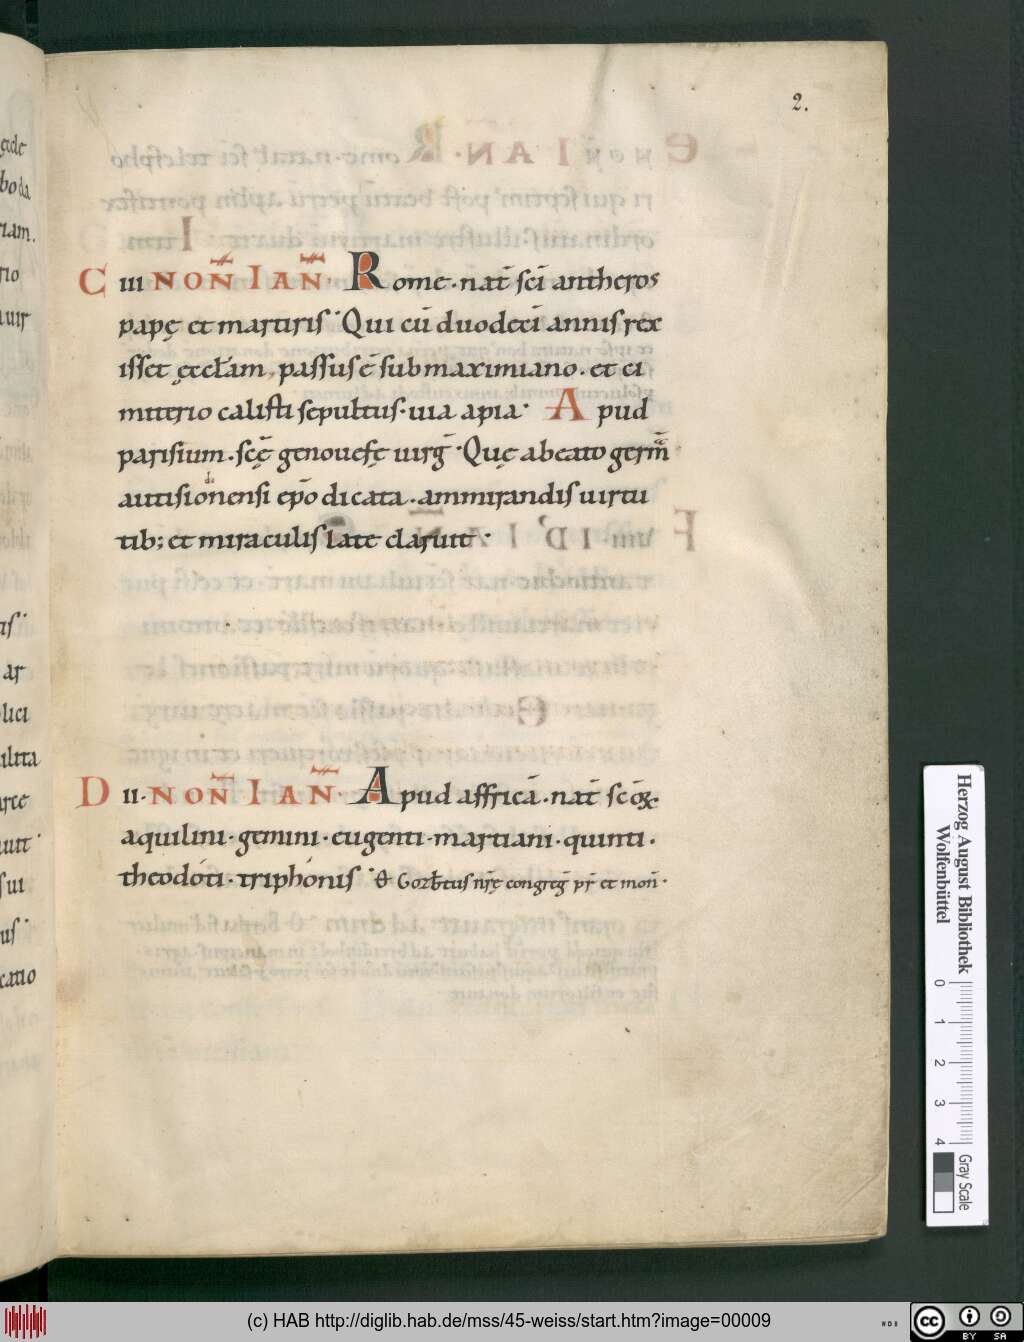 2.
I
C III NOÑ IAÑ. Rome. nat̄ sc̄i antheros
papę et martiris. Qui cū duodeci annis rex
isset ęccl̄am, passus ē sub maximiano. et ci
miterio calisti sepultus. uia apia. Apud
parisium. sc̄ę genouefę uirḡ. Quę a beato germ̄
autisiodorensi ep̄o dicata. ammirandis uirtu
tib; et miraculis late claruit.
D II. NOÑ IAÑ. Apud affricā. nat̄ sc̄oꝝ.
aquilini. gemini. eugenti. martiani. quinti.
theodóti. triphónis. & Gorb̄tus nr̄ę congreḡ pr̄ et mon̄.
Herzog August Bibliothek
Wolfenbüttel
0 1 2 3 4
Gray Scale
(c) HAB http://diglib.hab.de/mss/45-weiss/start.htm?image=00009
WDB
cc BY SA